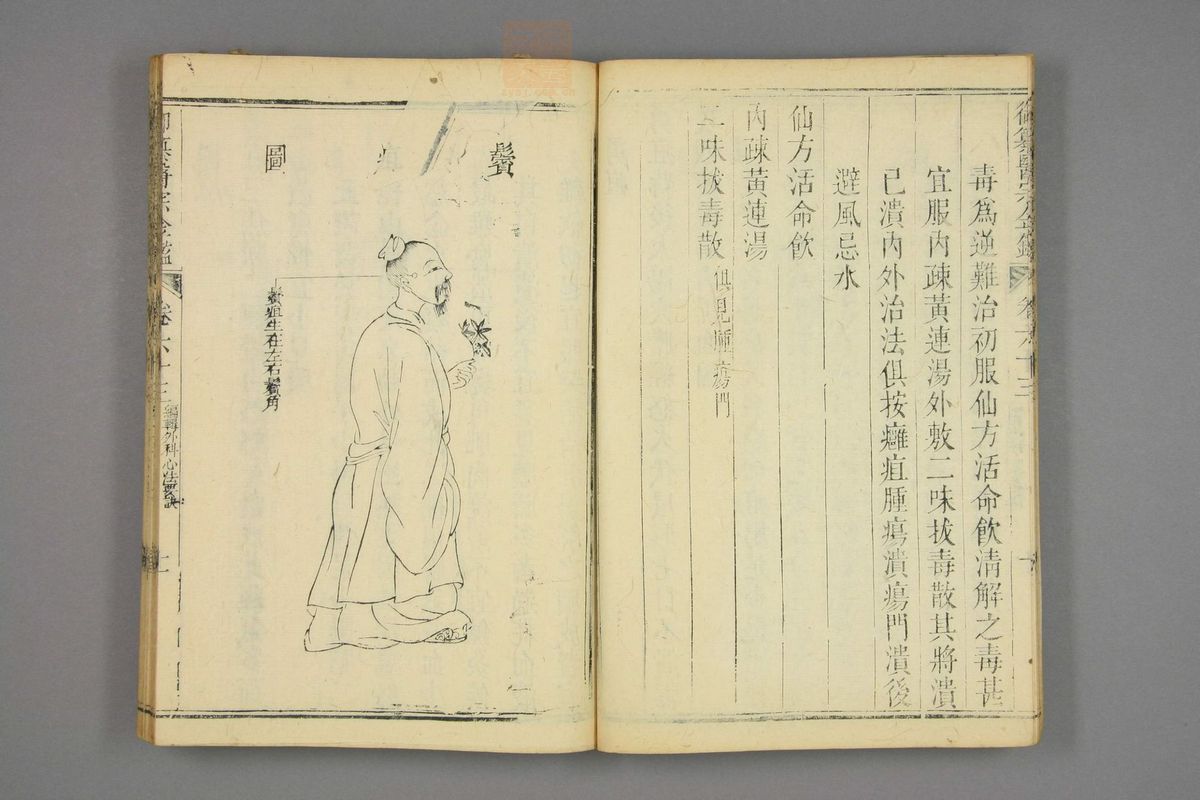 毒爲逆難治初服仙方活命飲清解之毒甚
宜服內疎黃連湯外敷二味拔毒散其將潰
已潰內外治法俱按癰疽腫瘍潰瘍門潰後
避風忌水
仙方活命飲
內疎黃連湯
二味拔毒散俱見腫瘍門
鬢
圖
鬢疽生在左右鬢角
醫宗金鑑
卷六十三
編輯外科心法要訣